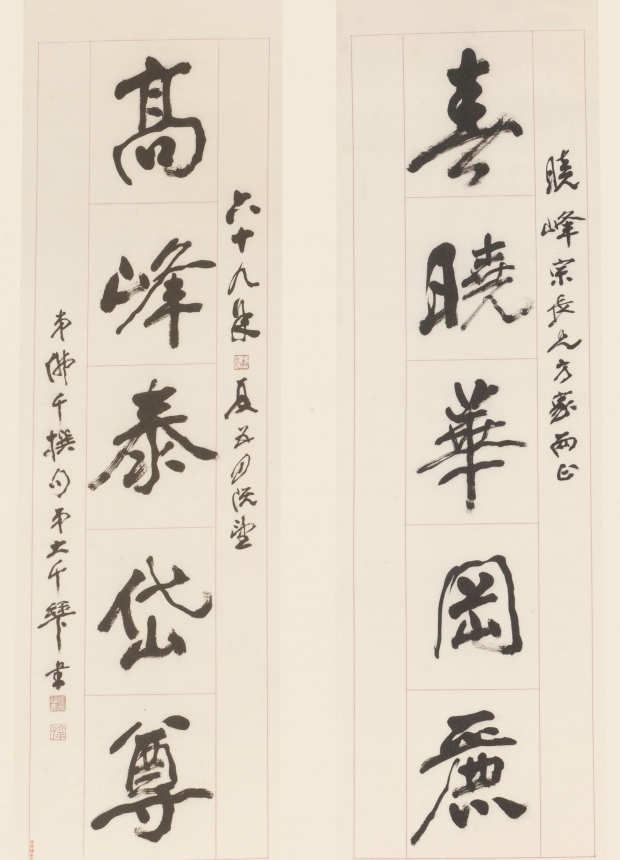 曉峰宗長兄方家兩正
春曉華岡麗
六十九年夏五月既望
髙峰泰岱尊
弟佛千撰句弟大千爰書